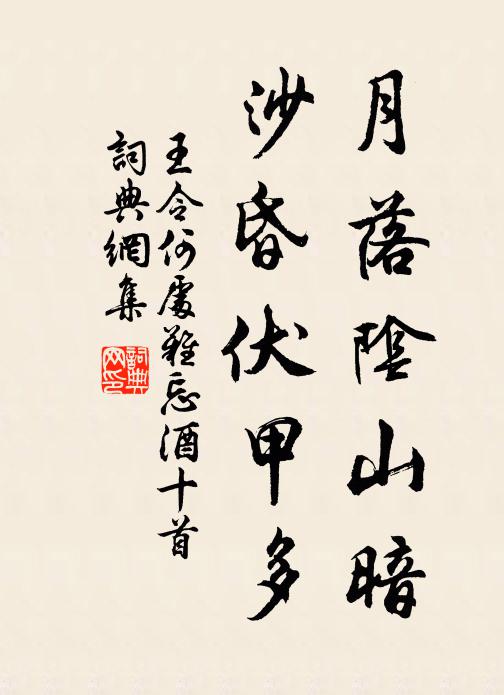 月落陰山暗
沙昏伏甲多
王令何處難忘酒十首
詞典網集
詞典网印